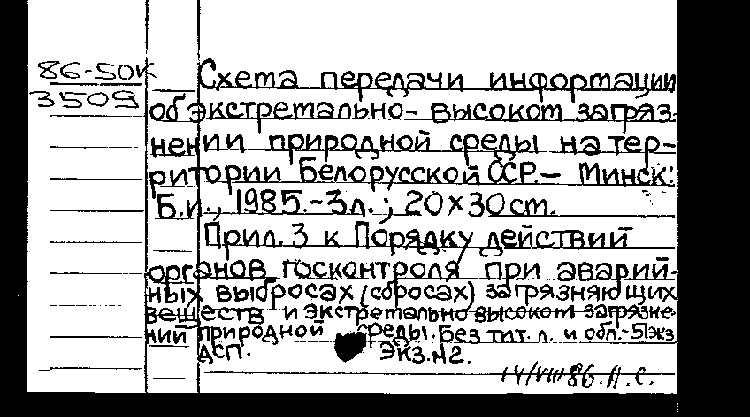 86-50К
3509
Схема передачи информации
об экстремально- высоком загряз-
нении природной среды на тер-
ритории Белорусской ССР.- Минск:
Б.и., 1985.-3л.; 20х30 см.
Прил. 3 к Порядку действий
органов госконтроля при аварий-
ных выбросах (сбросах) загрязняющих
веществ и экстремально высоком загрязне
ний природной среды. Без тит. л. и обл.-51экз
ДСП. ЭКЗ.№2.
14/VIII 86. А.С.